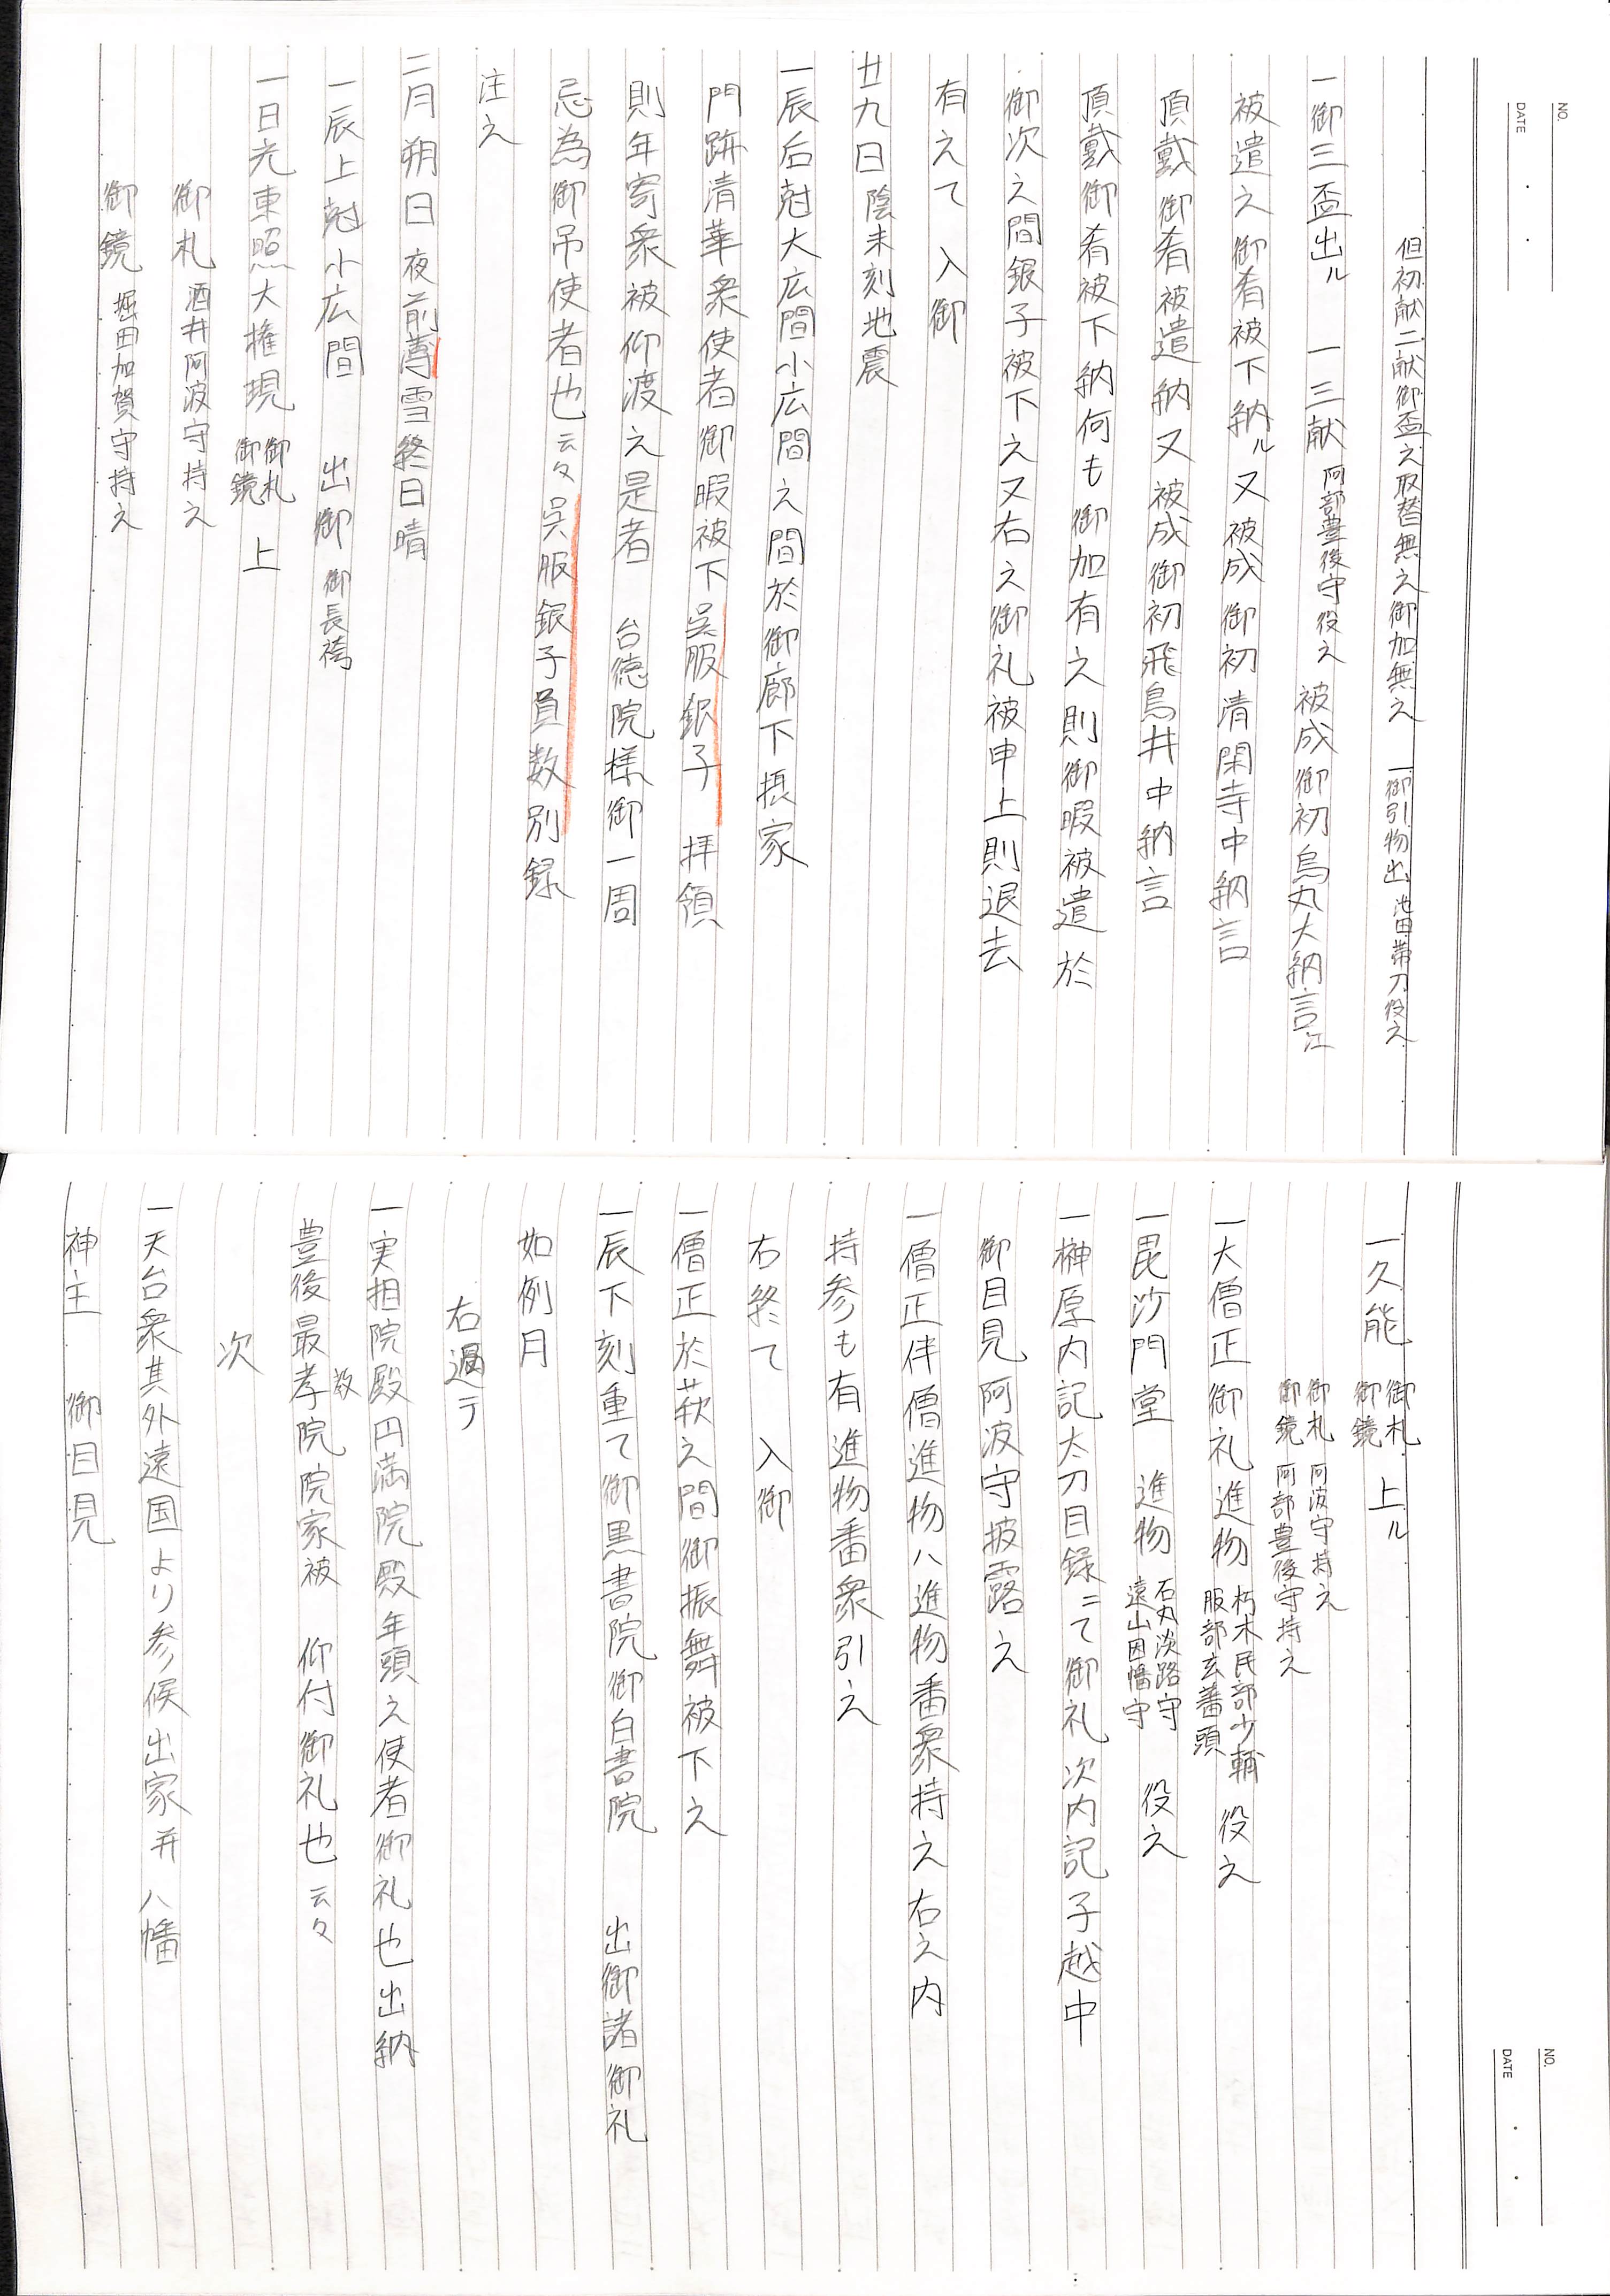 NO.
DATE
但初献二献御盃之取替無之御加無之 一御引物出 池田帯刀役之
一御三盃出ル 一三献 阿部豊後守役之 被成御初烏丸大納言江
被遣之御肴被下納ル又被成御初清閑寺中納言
頂戴御肴被遣納又被成御初飛鳥井中納言
頂戴御肴被下納何も御加有之則御暇被遣於
御次之間銀子被下之又右之御礼被申上則退去
有之て 入御
廿九日陰未刻地震
一辰后尅大広間小広間之間於御廊下摂家
門跡清華衆使者御暇被下呉服銀子 拝領
則年寄衆被仰渡之是者 台徳院様御一周
忌為御吊使者也云々呉服銀子員数別録
注之
二月朔日夜前薄雪終日晴
一辰上尅小広間 出御 御長袴
一日光東照大権現 御札 御鏡 上
御札 酒井阿波守持之
御鏡 堀田加賀守持之
NO.
DATE
一久能 御札 御鏡 上ル
御札 阿波守持之
御鏡 阿部豊後守持之
一大僧正御礼進物 朽木民部少輔 服部玄蕃頭 役之
一毘沙門堂 進物 石丸淡路守 遠山因幡守 役之
一榊原内記太刀目録ニて御礼次内記子越中
御目見阿波守披露之
一僧正伴僧進物ハ進物番衆持之右之内
持参も有進物番衆引之
右終て 入御
一僧正於萩之間御振舞被下之
一辰下刻重て御黒書院御白書院 出御諸御礼
如例月
右過テ
一実相院殿円満院殿年頭之使者御礼也出納
豊後最孝院院家被 仰付御礼也云々
教
次
一天台衆其外遠国より参候出家并八幡
神主 御目見